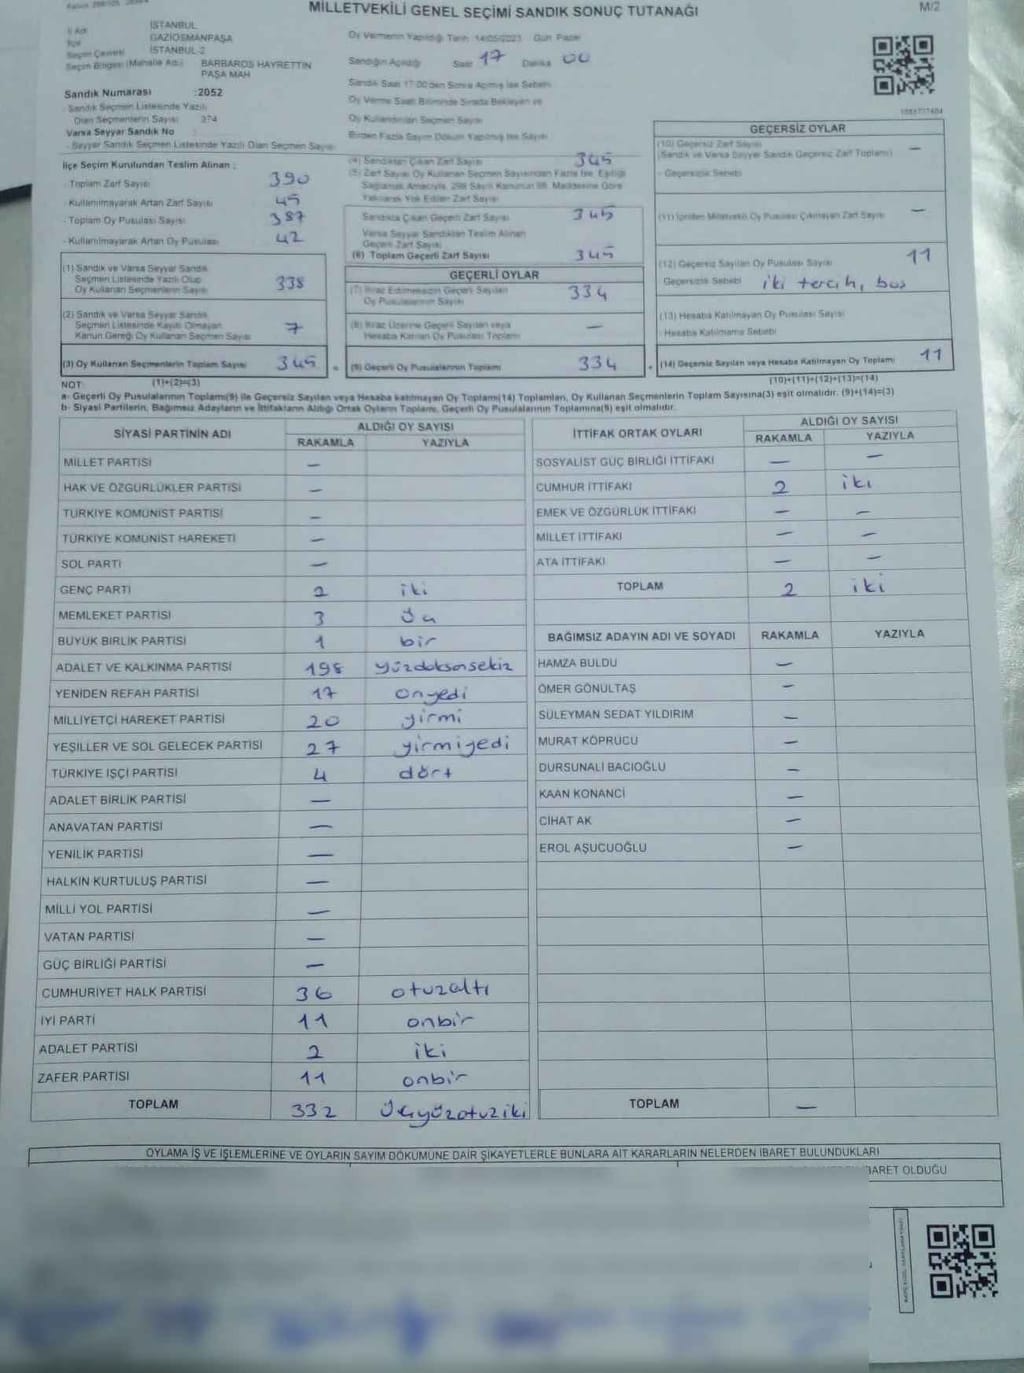 MİLLETVEKİLİ GENEL SEÇİMİ SANDIK SONUÇ TUTANAĞI
M/2
İl Adı İSTANBUL
İlçe GAZİOSMANPAŞA
Seçim Çevresi İSTANBUL-2
Seçim Bölgesi (Mahalle Adı) BARBAROS HAYRETTİN PAŞA MAH
Sandık Numarası :2052
- Sandık Seçmen Listesinde Yazılı Olan Seçmenlerin Sayısı 374
Varsa Seyyar Sandık No
- Seyyar Sandık Seçmen Listesinde Yazılı Olan Seçmen Sayısı
Oy Vermenin Yapıldığı Tarih 14/05/2023 Gün Pazar
Sandığın Açıldığı Saat 17 Dakika 00
Sandık Saat 17:00'den Sonra Açılmış İse Sebebi
Oy Verme Saati Bitiminde Sırada Bekleyen ve
Oy Kullandırılan Seçmen Sayısı
Birden Fazla Sayım Döküm Yapılmış İse Sayısı
İlçe Seçim Kurulundan Teslim Alınan :
- Toplam Zarf Sayısı 390
- Kullanılmayarak Artan Zarf Sayısı 45
- Toplam Oy Pusulası Sayısı 387
- Kullanılmayarak Artan Oy Pusulası 42
(1) Sandık ve Varsa Seyyar Sandık Seçmen Listesinde Yazılı Olup Oy Kullanan Seçmenlerin Sayısı 338
(2) Sandık ve Varsa Seyyar Sandık Seçmen Listesinde Kayıtlı Olmayan Kanun Gereği Oy Kullanan Seçmen Sayısı 7
(3) Oy Kullanan Seçmenlerin Toplam Sayısı 345
(1)+(2)=(3)
(4) Sandıktan Çıkan Zarf Sayısı 345
(5) Zarf Sayısı Oy Kullanan Seçmen Sayısından Fazla İse, Eşitliği Sağlamak Amacıyla, 298 Sayılı Kanunun 98. Maddesine Göre Yakılarak Yok Edilen Zarf Sayısı
Sandıkta Çıkan Geçerli Zarf Sayısı 345
Varsa Seyyar Sandıktan Teslim Alınan Geçerli Zarf Sayısı
(6) Toplam Geçerli Zarf Sayısı 345
GEÇERLİ OYLAR
(7) İtiraz Edilmeksizin Geçerli Sayılan Oy Pusulalarının Sayısı 334
(8) İtiraz Üzerine Geçerli Sayılan veya Hesaba Katılan Oy Pusulaları Toplamı —
(9) Geçerli Oy Pusulalarının Toplamı 334
GEÇERSİZ OYLAR
(10) Geçersiz Zarf Sayısı —
(Sandık ve Varsa Seyyar Sandık Geçersiz Zarf Toplamı)
- Geçersizlik Sebebi
(11) İçinden Milletvekili Oy Pusulası Çıkmayan Zarf Sayısı —
(12) Geçersiz Sayılan Oy Pusulası Sayısı 11
Geçersizlik Sebebi iki tercih, boş
(13) Hesaba Katılmayan Oy Pusulası Sayısı
- Hesaba Katılmama Sebebi
(14) Geçersiz Sayılan veya Hesaba Katılmayan Oy Toplamı 11
(10)+(11)+(12)+(13)=(14)
NOT:
a- Geçerli Oy Pusulalarının Toplamı(9) ile Geçersiz Sayılan veya Hesaba katılmayan Oy Toplamı(14) Toplamları, Oy Kullanan Seçmenlerin Toplam Sayısına(3) eşit olmalıdır. (9)+(14)=(3)
b- Siyasi Partilerin, Bağımsız Adayların ve İttifakların Aldığı Ortak Oyların Toplamı, Geçerli Oy Pusulalarının Toplamına(9) eşit olmalıdır.
SİYASİ PARTİNİN ADI
ALDIĞI OY SAYISI
RAKAMLA YAZIYLA
MİLLET PARTİSİ —
HAK VE ÖZGÜRLÜKLER PARTİSİ —
TÜRKİYE KOMÜNİST PARTİSİ —
TÜRKİYE KOMÜNİST HAREKETİ —
SOL PARTİ —
GENÇ PARTİ 2 iki
MEMLEKET PARTİSİ 3 üç
BÜYÜK BİRLİK PARTİSİ 1 bir
ADALET VE KALKINMA PARTİSİ 198 yüzdoksansekiz
YENİDEN REFAH PARTİSİ 17 onyedi
MİLLİYETÇİ HAREKET PARTİSİ 20 yirmi
YEŞİLLER VE SOL GELECEK PARTİSİ 27 yirmiyedi
TÜRKİYE İŞÇİ PARTİSİ 4 dört
ADALET BİRLİK PARTİSİ —
ANAVATAN PARTİSİ —
YENİLİK PARTİSİ —
HALKIN KURTULUŞ PARTİSİ —
MİLLİ YOL PARTİSİ —
VATAN PARTİSİ —
GÜÇ BİRLİĞİ PARTİSİ —
CUMHURİYET HALK PARTİSİ 36 otuzaltı
İYİ PARTİ 11 onbir
ADALET PARTİSİ 2 iki
ZAFER PARTİSİ 11 onbir
TOPLAM 332 üçyüzotuziki
İTTİFAK ORTAK OYLARI
ALDIĞI OY SAYISI
RAKAMLA YAZIYLA
SOSYALİST GÜÇ BİRLİĞİ İTTİFAKI — —
CUMHUR İTTİFAKI 2 iki
EMEK VE ÖZGÜRLÜK İTTİFAKI — —
MİLLET İTTİFAKI — —
ATA İTTİFAKI — —
TOPLAM 2 iki
BAĞIMSIZ ADAYIN ADI VE SOYADI RAKAMLA YAZIYLA
HAMZA BULDU —
ÖMER GÖNÜLTAŞ —
SÜLEYMAN SEDAT YILDIRIM —
MURAT KÖPRÜCÜ —
DURSUNALİ BACIOĞLU —
KAAN KONANCİ —
CİHAT AK —
EROL AŞUCUOĞLU —
TOPLAM —
OYLAMA İŞ VE İŞLEMLERİNE VE OYLARIN SAYIM DÖKÜMÜNE DAİR ŞİKAYETLERLE BUNLARA AİT KARARLARIN NELERDEN İBARET BULUNDUKLARI
BARET OLDUĞU